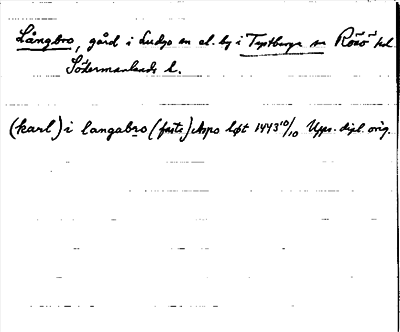 Långbro, gård i Ludgo sn el. by i Tystberga sn Rönö hd.
Södermanlands l.
(karl) i langabro (faste) Aspo løt 1443 10/10 Upps. dipl. orig.